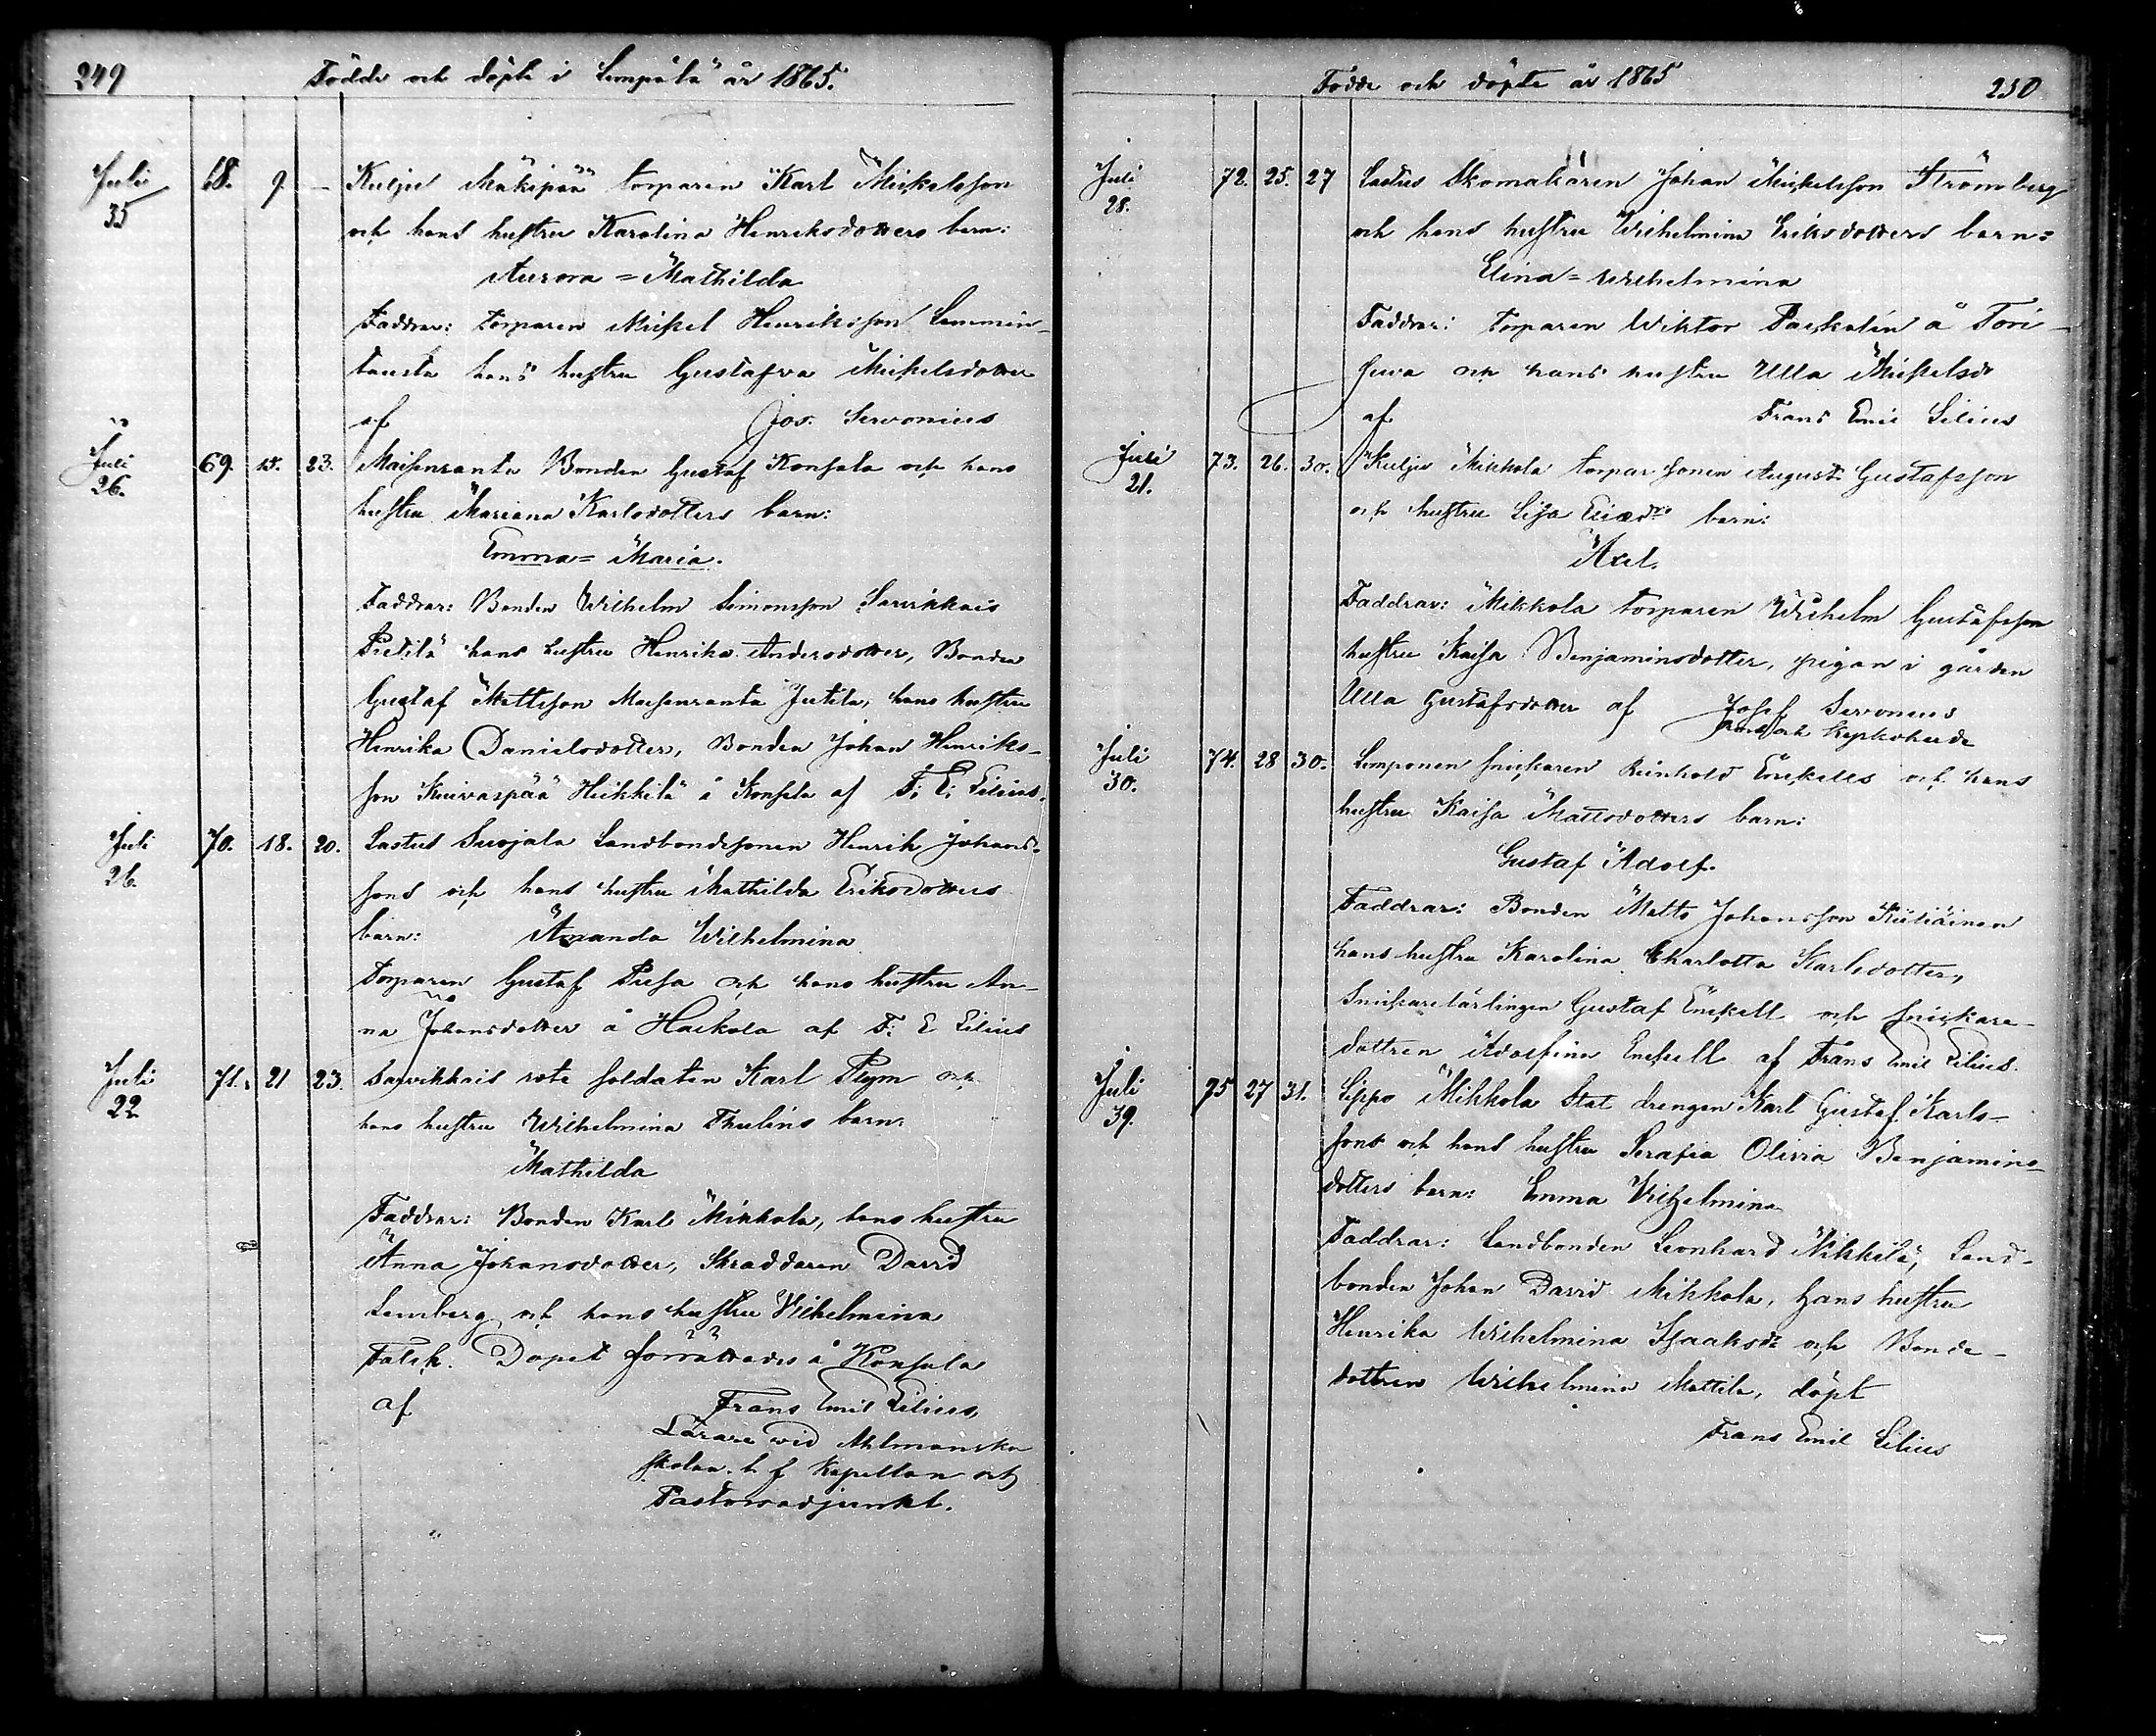 249 Födde och döpte i Lempälä år 1865.
Juli 35 68. 9 – Kuljus Mäkipää torparen Karl Mickelsson
och hans hustru Karolina Henriksdotters barn:
Aurora = Mathilda
Faddrar: torparen Mickel Henriksson Lammin-
tausta hans hustru Gustafva Mickelsdotter
af Jos. Servonius
Juli 26. 69. 15. 23. Maisenranta Bonden Gustaf Konsala och hans
hustru Mariana Karlsdotters barn:
Emma = Maria.
Faddrar: Bonden Wilhelm Simonsson Sarvikkais
Pietilä hans hustru Henrika Andersdotter, Bonden
Gustaf Mattsson Maisenranta Jutila, hans hustru
Henrika Danielsdotter, Bonden Johan Henriks-
son Kuivaspää Heikkilä å Konsala af F. E. Lilius.
Juli 26. 70. 18. 20. Lastus Suojala Landbondesonen Henrik Johans-
sons och hans hustru Mathilda Eriksdotters
barn: Amanda Wilhelmina
torparen Gustaf Piesa och hans hustru An-
na Johansdotter å Hackola af F. E Lilius
Juli 22 71. 21 23. Sarvikkais rote soldaten Karl Plym och
hans hustru Wilhelmina Thulins barn.
Mathilda
Faddrar: Bonden Karl Mikkola, hans hustru
Anna Johansdotter, Skräddaren David
Lemberg och hans hustru Vilhelmina
Falck. Dopet förrättades å Konsala
af Frans Emil Lilius,
Lärare vid Ahlmanska
skolan. t. f. Kapellan och
Pastorsadjunkt.
Födde och döpte år 1865 250
Juli 28. 72. 25. 27 Lastus Skomakaren Johan Mickelsson Strömberg
och hans hustru Wilhelmina Eriksdotters barn:
Elina = Wilhelmina
Faddrar: torparen Wiktor Packalén å Tori-
suva och hans hustru Ulla Mickelsdr
af Frans Emil Lilius
Juli 21. 73. 26. 30. Kuljus Mikkola torpar sonen August Gustafsson
och hustru Lisa Eliædrs barn:
Axel.
Faddrar: Mikkola torparen Wilhelm Gustafsson
hustru Kaisa Benjaminsdotter, pigan i gården
Ulla Gustafsdotter af Josef Servonius
Prost och Kyrkoherde
Juli 30. 74. 28 30. Lemponen snickaren Reinhold Enckells och hans
hustru Kaisa Mattsdotters barn:
Gustaf Adolf.
Faddrar: Bonden Matts Johansson Kuliäinen
hans hustru Karolina Charlotta Karlsdotter,
Snickarelärlingen Gustaf Enckell och snickare-
dottren Adolfina Enckell af Frans Emil Lilius.
Juli 39. 75 27 31. Sippo Mikkola Stat drengen Karl Gustaf Karls-
sons och hans hustru Serafia Olivia Benjamins-
dotters barn: Emma Vilhelmina
Faddrar: Landbonden Leonhard Nikkilä, Land-
bonden Johan David Mikkola, hans hustru
Henrika Wilhelmina Isaaksdr och Bonde-
dottren Wilhelmina Mattila, döpt
Frans Emil Lilius